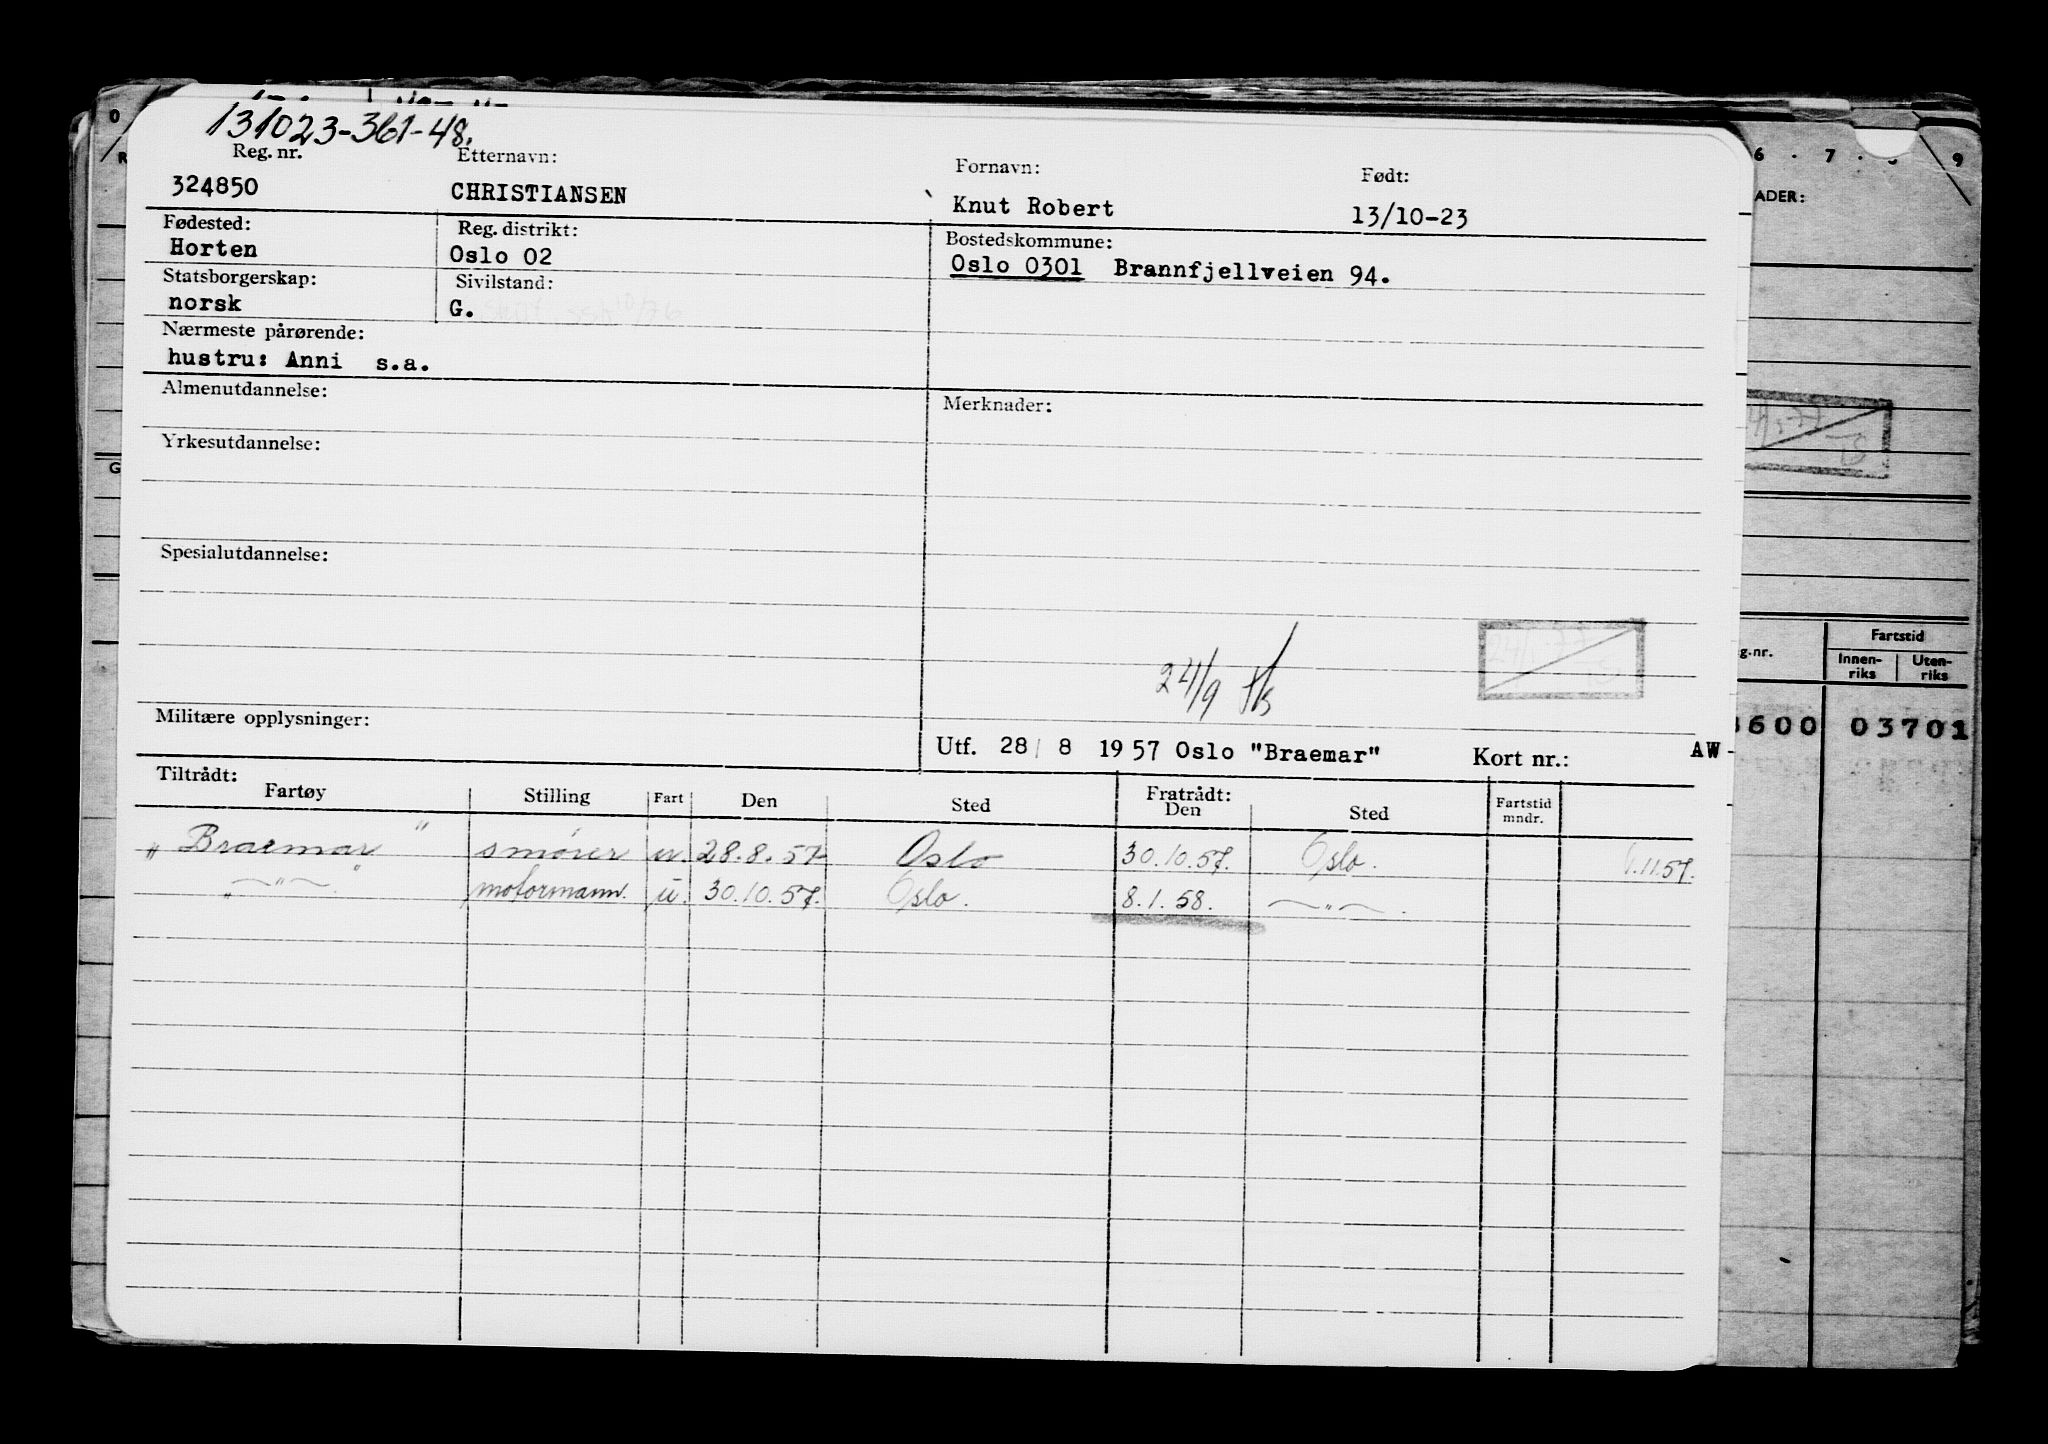 131023-361-48.
Reg. nr. Etternavn: Fornavn: Født:
324850 CHRISTIANSEN Knut Robert 13/10-23
Fødested: Reg. distrikt: Bostedskommune:
Horten Oslo 02 Oslo 0301 Brannfjellveien 94.
Statsborgerskap: Sivilstand:
norsk G.
Nærmeste pårørende:
hustru: Anni s.a.
Almenutdannelse: Merknader:
Yrkesutdannelse:
Spesialutdannelse:
24/9
Militære opplysninger:
Utf. 28/ 8 1957 Oslo "Braemar" Kort nr.: AW-
Tiltrådt: Fratrådt:
Fartøy Stilling Fart Den Sted Den Sted Fartstid mndr.
„Braemar" smører u. 28.8.57 Oslo 30.10.57. Oslo. 1.11.57.
„ —"— " motormann. u. 30.10.57. Oslo. 8.1.58. —"— .
0
6 . 7 . 8 . 9
ADER:
G
g.nr. Fartstid
Innen-riks Uten-riks
3600 03701